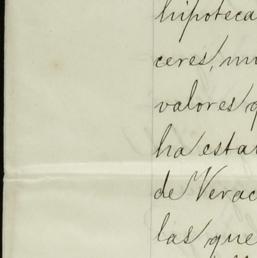 hipoteca
ceres, mu
valores q
ha esta
de Verac
las que